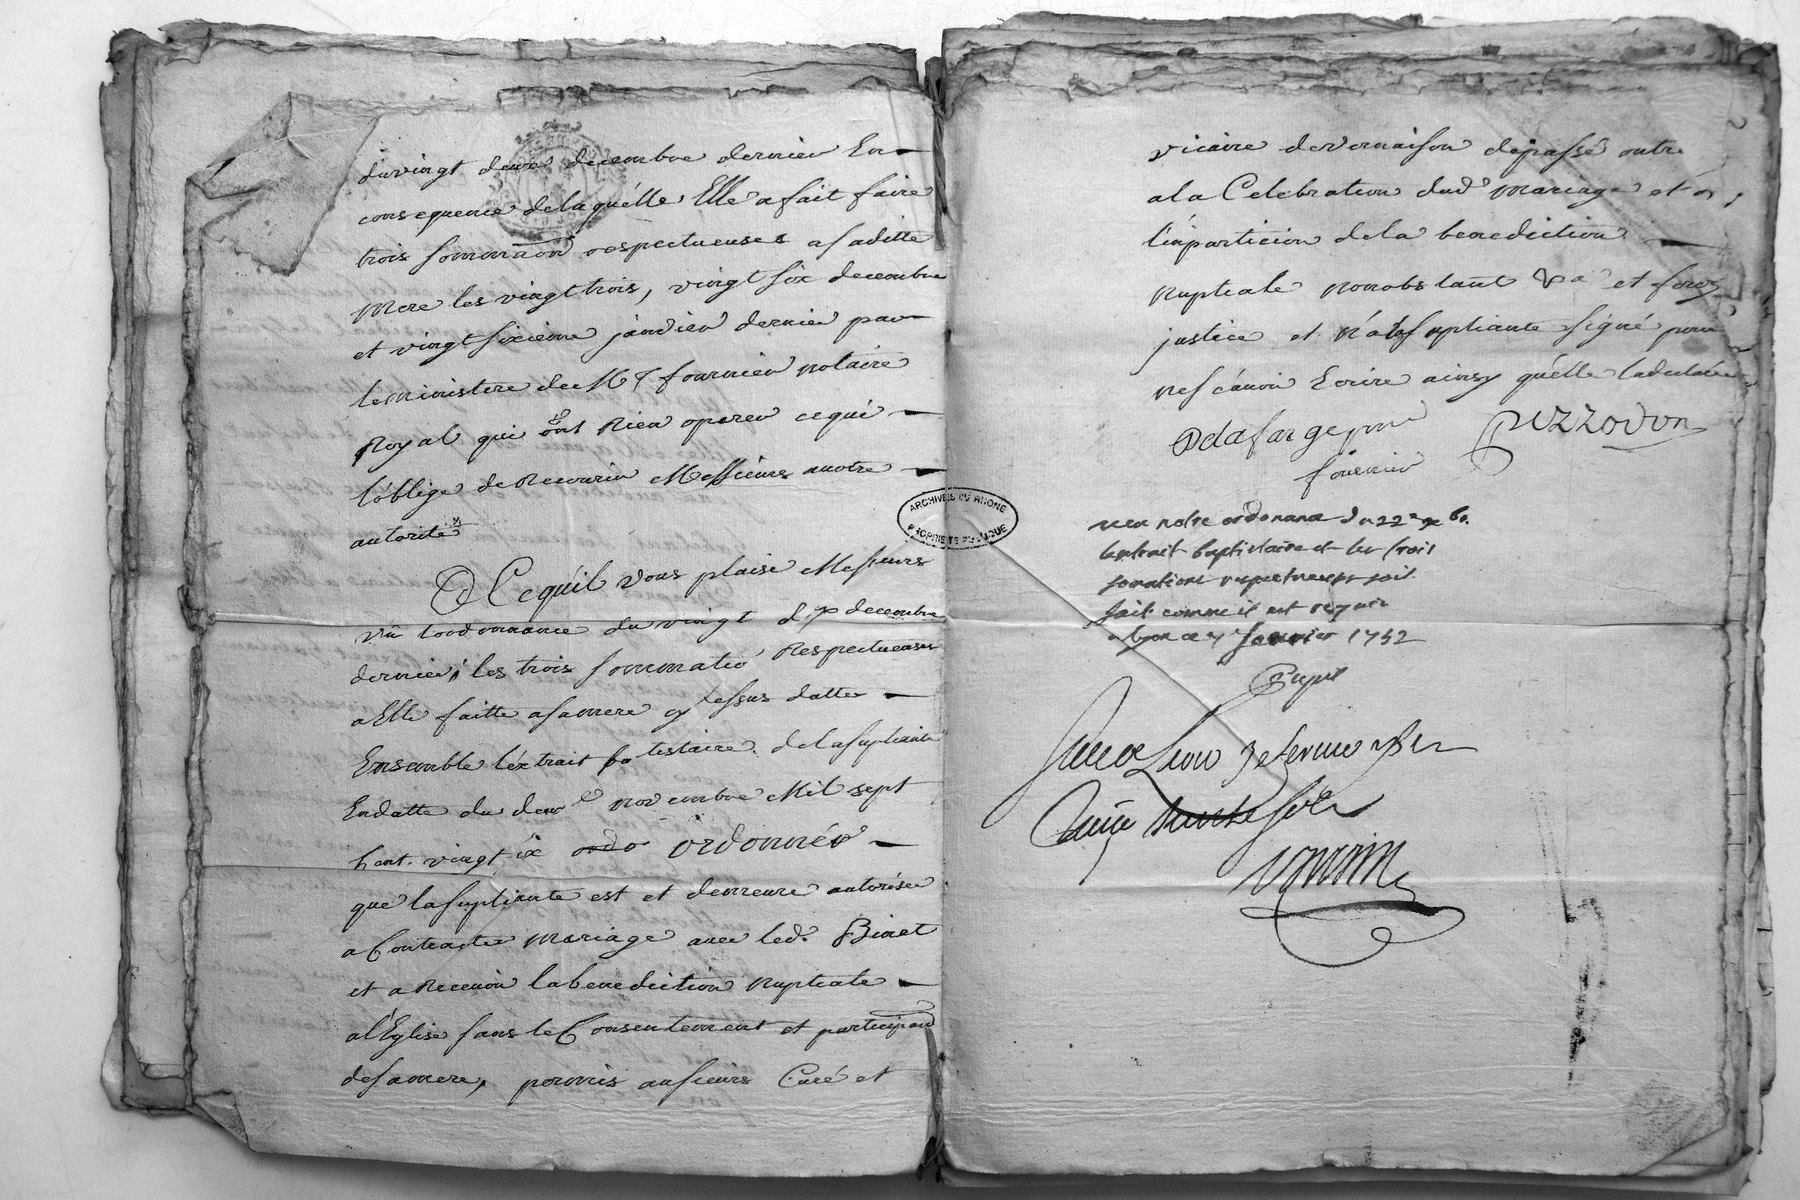 du vingt deux decembre dernier En
consequence de laquélle Elle a fait faire
trois sommaõn respectueuses a saditte
mere les vingt trois, vingt six decembre
et vingt sixieme janvier dernier par
le ministere de Me fournier notaire
Royal qui ont Rien operer ce qui
l'oblige de Recourir Messieurs a votre
autorité
A Ce qu'il vous plaise Messieurs
vû l'ordonnance du vingt decembre
dernier, les trois sommatio Respectueuses
a Elle faitte a sa mere cy dessus datte
Ensemble l'éxtrait batistaire de la supliante
En datte du deux novembre Mil sept
Cent vingt six ordo ordonner
que la supliante est et demeure autorisée
a Contracter mariage avec led. Binet
et a Recevoir la benediction nuptiale
a l'Eglise sans le Consentement et participaõn
de sa mere, permis au sieurs Curé et
vicaire de vernaison de passé outre
a la Celebration dud mariage et a
l'inparticion de la benediction
nuptiale nonobstant et ferez
justice et n'a la supliante signé pour
ne sçavoir Ecrire ainsy qu'elle la declaré
Delafarge pour
fournier
Puzzodon
veu notre ordonance du 22e
lextrait baptistaire et les trois
somations respectueuses soit
fait comme il est requis
a lyon ce janvier 1752
Pupil
ARCHIVES DU RHONE
PROPRIÉTÉ PUBLIQUE